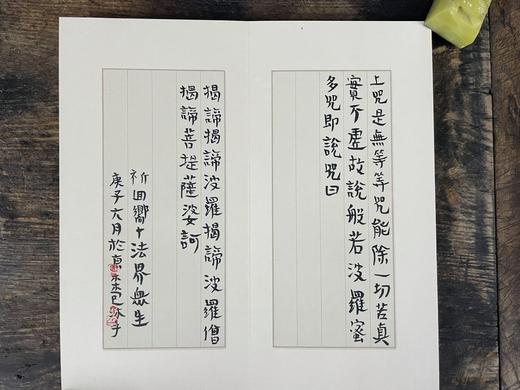 上咒是無等等咒能除一切苦真
實不虛故說般若波羅蜜
多咒即說咒曰
揭諦揭諦波羅揭諦波羅僧
揭諦菩提薩婆訶
祈回嚮十法界眾生
庚子六月於